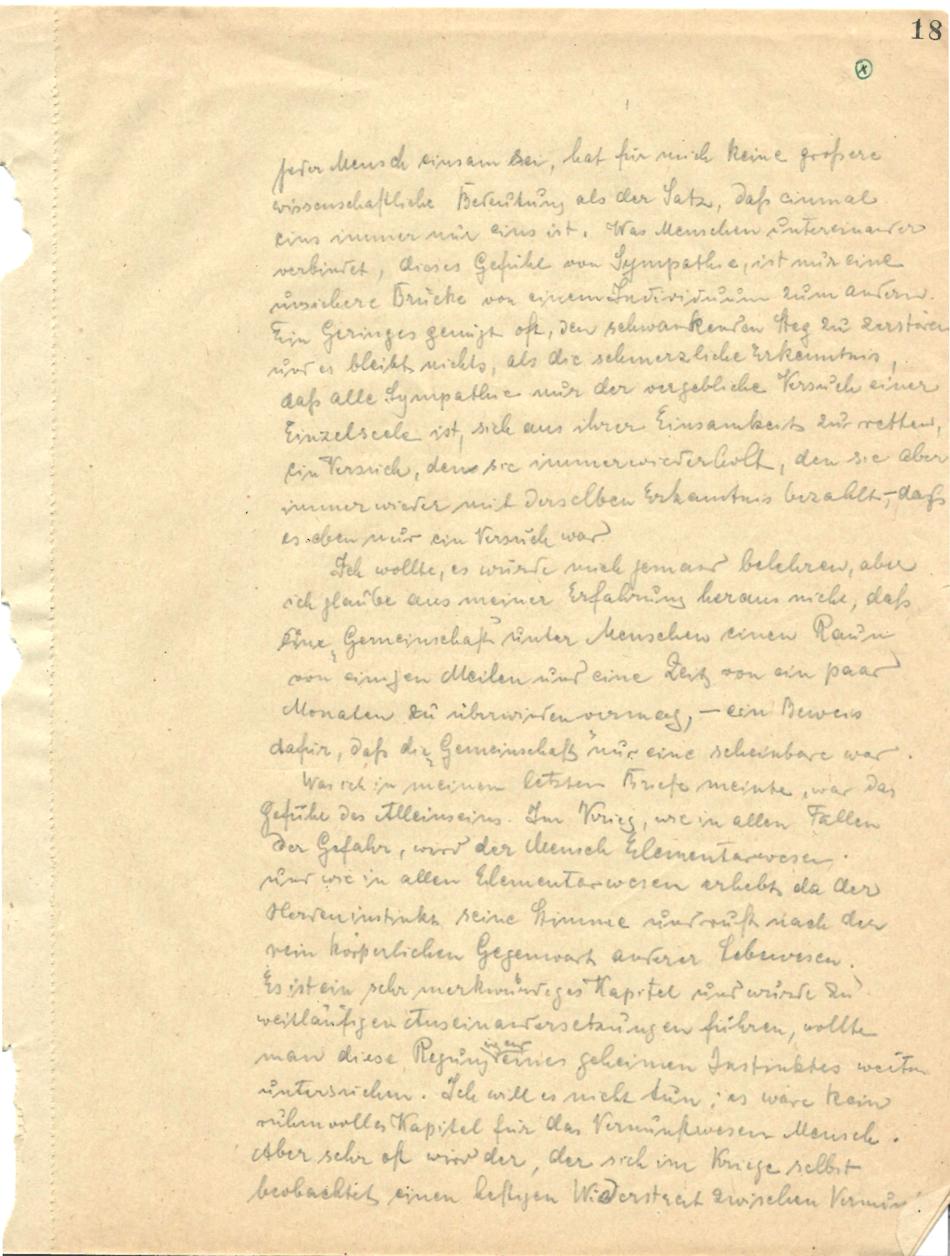 18
x
jeder Mensch einsam sei, hat für mich keine größere
wissenschaftliche Bedeutung als der Satz, daß einmal
eins immer nur eins ist. Was Menschen untereinander
verbindet, dieses Gefühl von Sympathie, ist nur eine
unsichere Brücke von einem Individuum zum andern.
Ein Geringes genügt oft, den schwankenden Steg zu zerstören
und es bleibt nichts, als die schmerzliche Erkenntnis,
daß alle Sympathie nur der vergebliche Versuch einer
Einzelseele ist, sich aus ihrer Einsamkeit zu retten,
ein Versuch, den sie immer wiederholt, den sie aber
immer wieder mit derselben Erkenntnis bezahlt, – daß
es eben nur ein Versuch war
Ich wollte, es würde mich jemand belehren, aber
ich glaube aus meiner Erfahrung heraus nicht, daß
eine „Gemeinschaft" unter Menschen einen Raum
von einigen Meilen und eine Zeit von ein paar
Monaten zu überwinden vermag, – ein Beweis
dafür, daß die „Gemeinschaft" nur eine scheinbare war.
Was ich in meinem letzten Briefe meinte, war das
Gefühl des Alleinseins. Im Krieg, wie in allen Fällen
der Gefahr, wird der Mensch Elementarwesen.
und wie in allen Elementarwesen erhebt da der
Herdeninstinkt seine Stimme und ruft nach der
rein körperlichen Gegenwart anderer Lebewesen.
Es ist ein sehr merkwürdiges Kapitel und würde zu
weitläufigen Auseinandersetzungen führen, wollte
man diese Regung eines geheimen Instinktes weiter
untersuchen. Ich will es nicht tun; es wäre kein
rühmvolles Kapitel für das Vernunftwesen Mensch.
Aber sehr oft wird der, der sich im Kriege selbst
beobachtet, einen heftigen Widerstreit zwischen